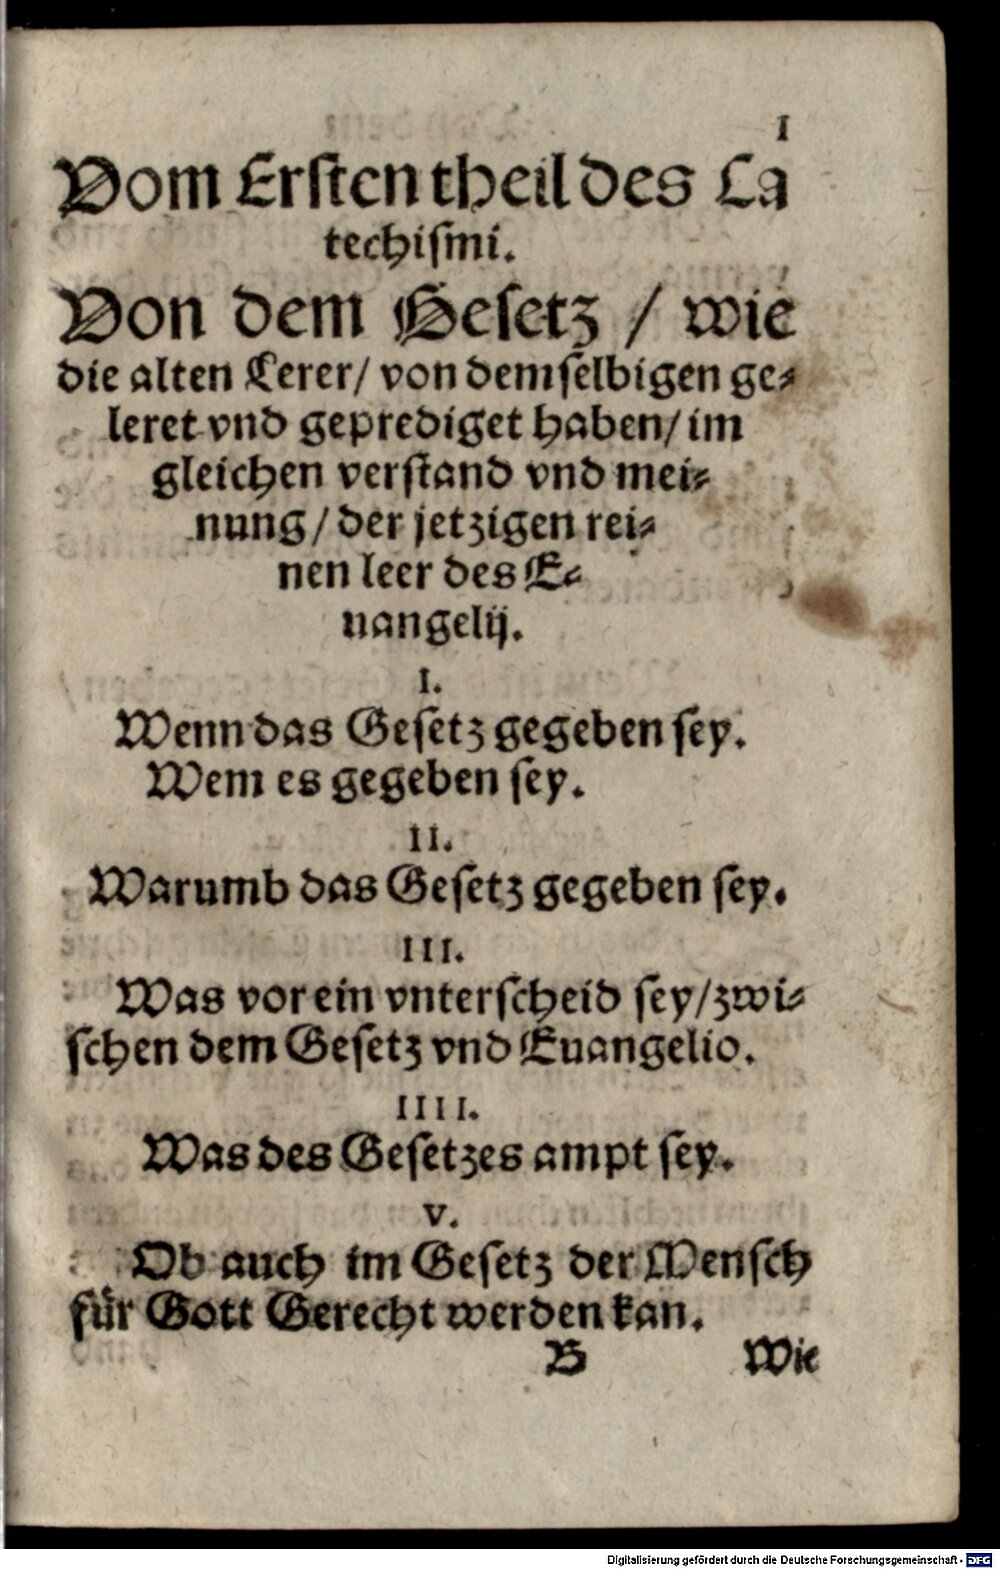 1
Vom Ersten theil des Ca
techiſmi.
Von dem Geſetz / wie
die alten Lerer / von demſelbigen ge⸗
leret vnd geprediget haben / im
gleichen verſtand vnd mei⸗
nung / der jetzigen rei⸗
nen leer des E⸗
uangelij.
I.
Wenn das Geſetz gegeben ſey.
Wem es gegeben ſey.
II.
Warumb das Geſetz gegeben ſey.
III.
Was vor ein vnterſcheid ſey / zwi⸗
ſchen dem Geſetz vnd Euangelio.
IIII.
Was des Geſetzes ampt ſey.
V.
Ob auch im Geſetz der Menſch
für Gott Gerecht werden kan.
B Wie
Digitalisierung gefördert durch die Deutsche Forschungsgemeinschaft - DFG